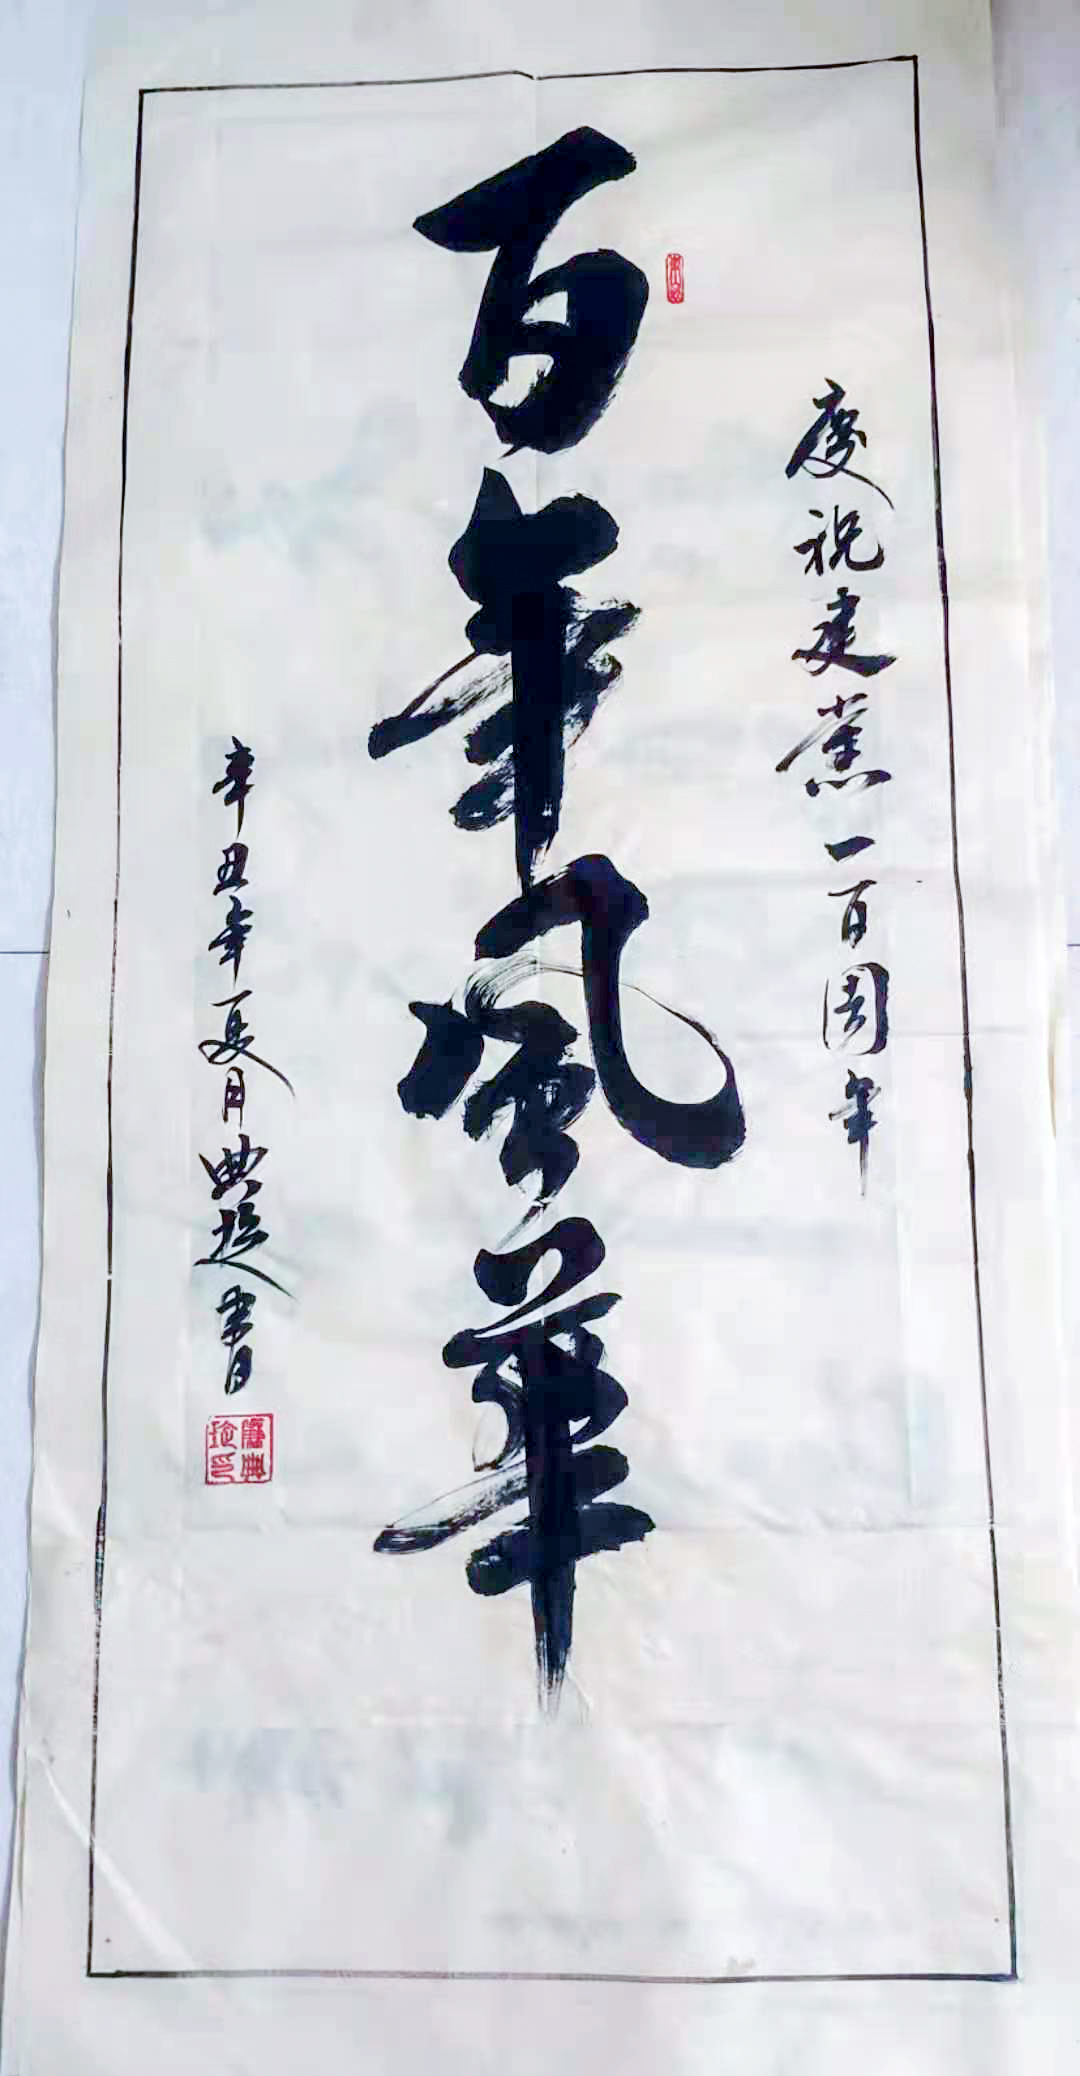 慶祝建黨一百周年
百年風華
辛丑年夏月典筵書